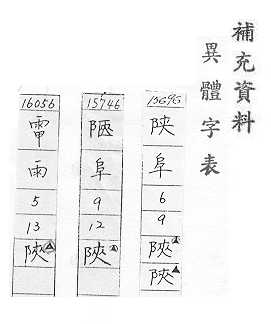 補充資料
異體字表
陕
阜
6
9
陝
陝
15746
阜
9
12
陝
16056
雨
5
13
陝